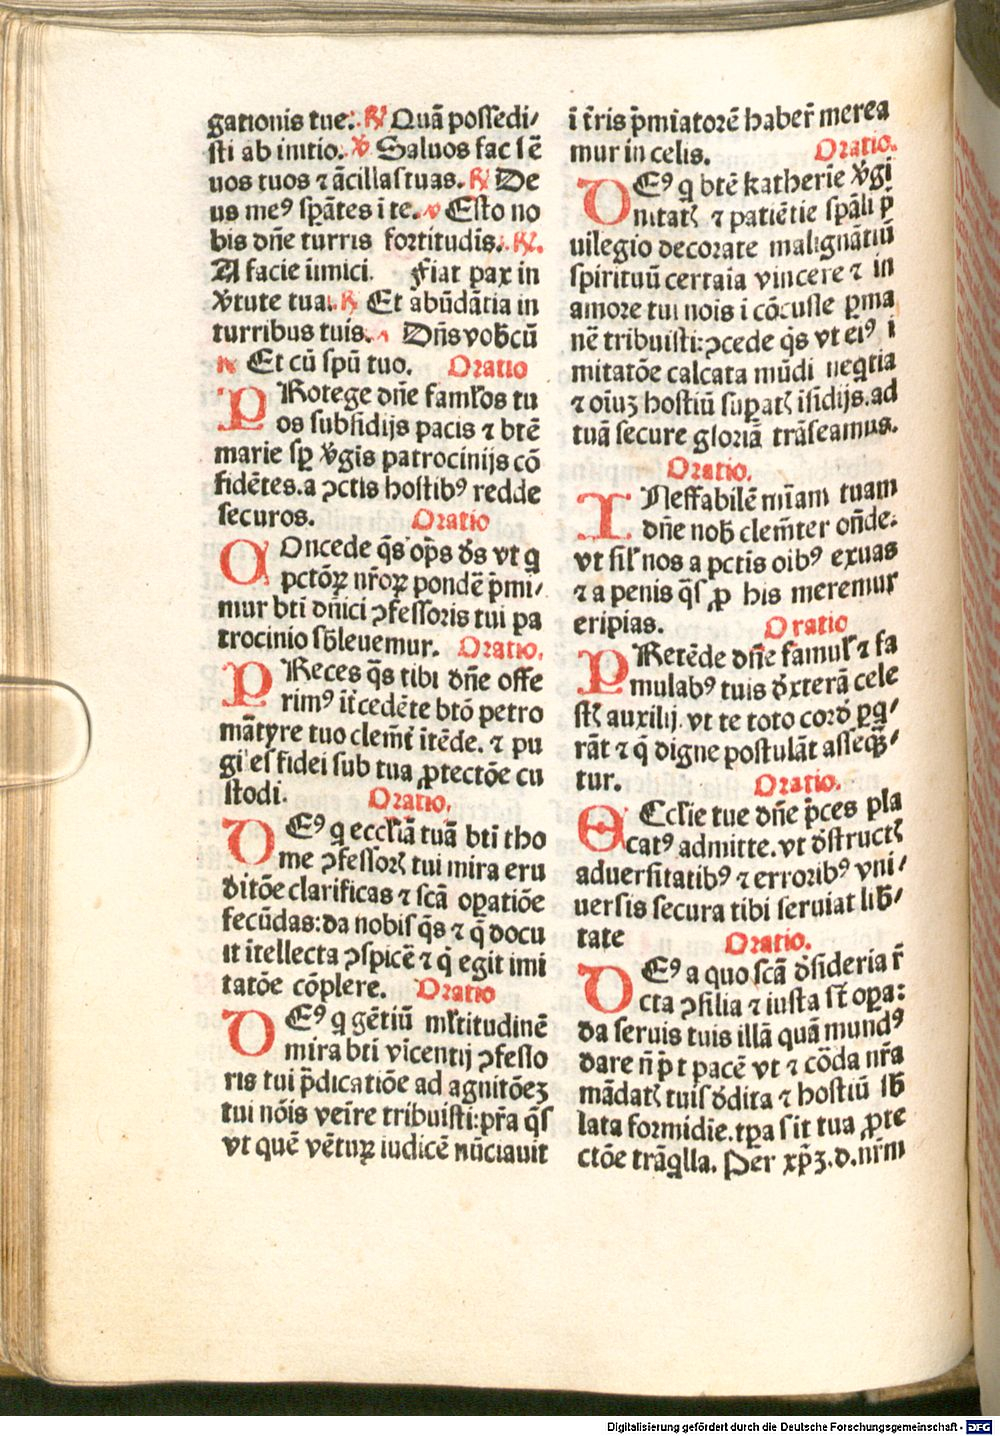 gationis tue. ℟ Quā possedi/
sti ab initio. ℣ Saluos fac sē
uos tuos ⁊ ācillas tuas. ℟ De
us meꝰ spātes ī te. ℣ Esto no
bis dn̄e turris fortitudis. ℟.
A facie īimici. Fiat pax in
v̄tute tua. ℟ Et abūdātia in
turribus tuis. Dn̄s vob̄cū
℟ Et cū spū tuo. Oratio
PRotege dn̄e famĺos tu
os subsidijs pacis ⁊ btē
marie sꝑ v̄gis patrocinijs cō
fidētes. a ꝯctis hostibꝰ redde
securos. Oratio
COncede q̄s op̄s ds̄ vt q
pctōꝝ nr̄oꝝ pondē p̄mi/
mur bti dn̄ici ꝯfessoris tui pa
trocinio sb̄leuemur. Oratio.
PReces q̄s tibi dn̄e offe
rimꝰ īt̄cedēte btō petro
mātyre tuo clemēt̄ ītēde. ⁊ pu
gies fidei sub tua ꝓtectōe cu
stodi. Oratio.
DEꝰ q eccĺiā tuā bti tho
me ꝯfessorꝭ tui mira eru
ditōe clarificas ⁊ scā oꝑatiōe
fecūdas: da nobis q̄s ⁊ q̄ docu
it ītellecta ꝯspicē ⁊ q̄ egit imi
tatōe cōplere. Oratio
DEꝰ q gētiū mĺtitudinē
mira bti vicentij ꝯfesso
ris tui p̄dicatiōe ad agnitōeꝫ
tui nōis veīre tribuisti: pr̄a q̄s
vt quē vētuꝝ iudicē nūciauit
ī t̄ris p̄miatorē haber̄ merea
mur in celis. Oratio.
DEꝰ q btē katherīe v̄gi
nitatꝭ ⁊ patiētie spāli p̄
uilegio decorate malignātiū
spirituū certaīa vincere ⁊ in
amore tui nois ī cōcusse ꝑma
nē tribuisti: ꝯcede q̄s vt eiꝰ ī
mitatōe calcata mūdi neqtia
⁊ oīuꝫ hostiū suꝑatꝭ īsidijs. ad
tuā secure gloriā trāseamus.
Oratio.
INeffabilē mīam tuam
dn̄e nob̄ clemēter on̄de:
vt siĺ nos a pctis oibꝰ exuas
⁊ a penis q̄s ꝓ his meremur
eripias. Oratio
PRetēde dn̄e famuĺ ⁊ fa
mulabꝰ tuis dxterā cele
stꝭ auxilij. vt te toto cord̄ ꝑq̄/
rāt ⁊ q̄ digne postulāt asseq̄/
tur. Oratio.
ECclīe tue dn̄e p̄ces pla
catꝰ admitte. vt dstructꝭ
aduersitatibꝰ ⁊ erroribꝰ vni/
uersis secura tibi seruiat lib̄/
tate Oratio.
DEꝰ a quo scā dsideria r̄
cta ꝯsilia ⁊ iusta st̄ oꝑa:
da seruis tuis illā quā mundꝰ
dare n̄ p̄t pacē vt ⁊ cōda nr̄a
mādatꝭ tuis ddita ⁊ hostiū sb̄
lata formidīe. tꝑa sit tua ꝓte
ctōe trāq̄lla. Per xp̄ꝫ. d. nr̄m
Digitalisierung gefördert durch die Deutsche Forschungsgemeinschaft - DFG